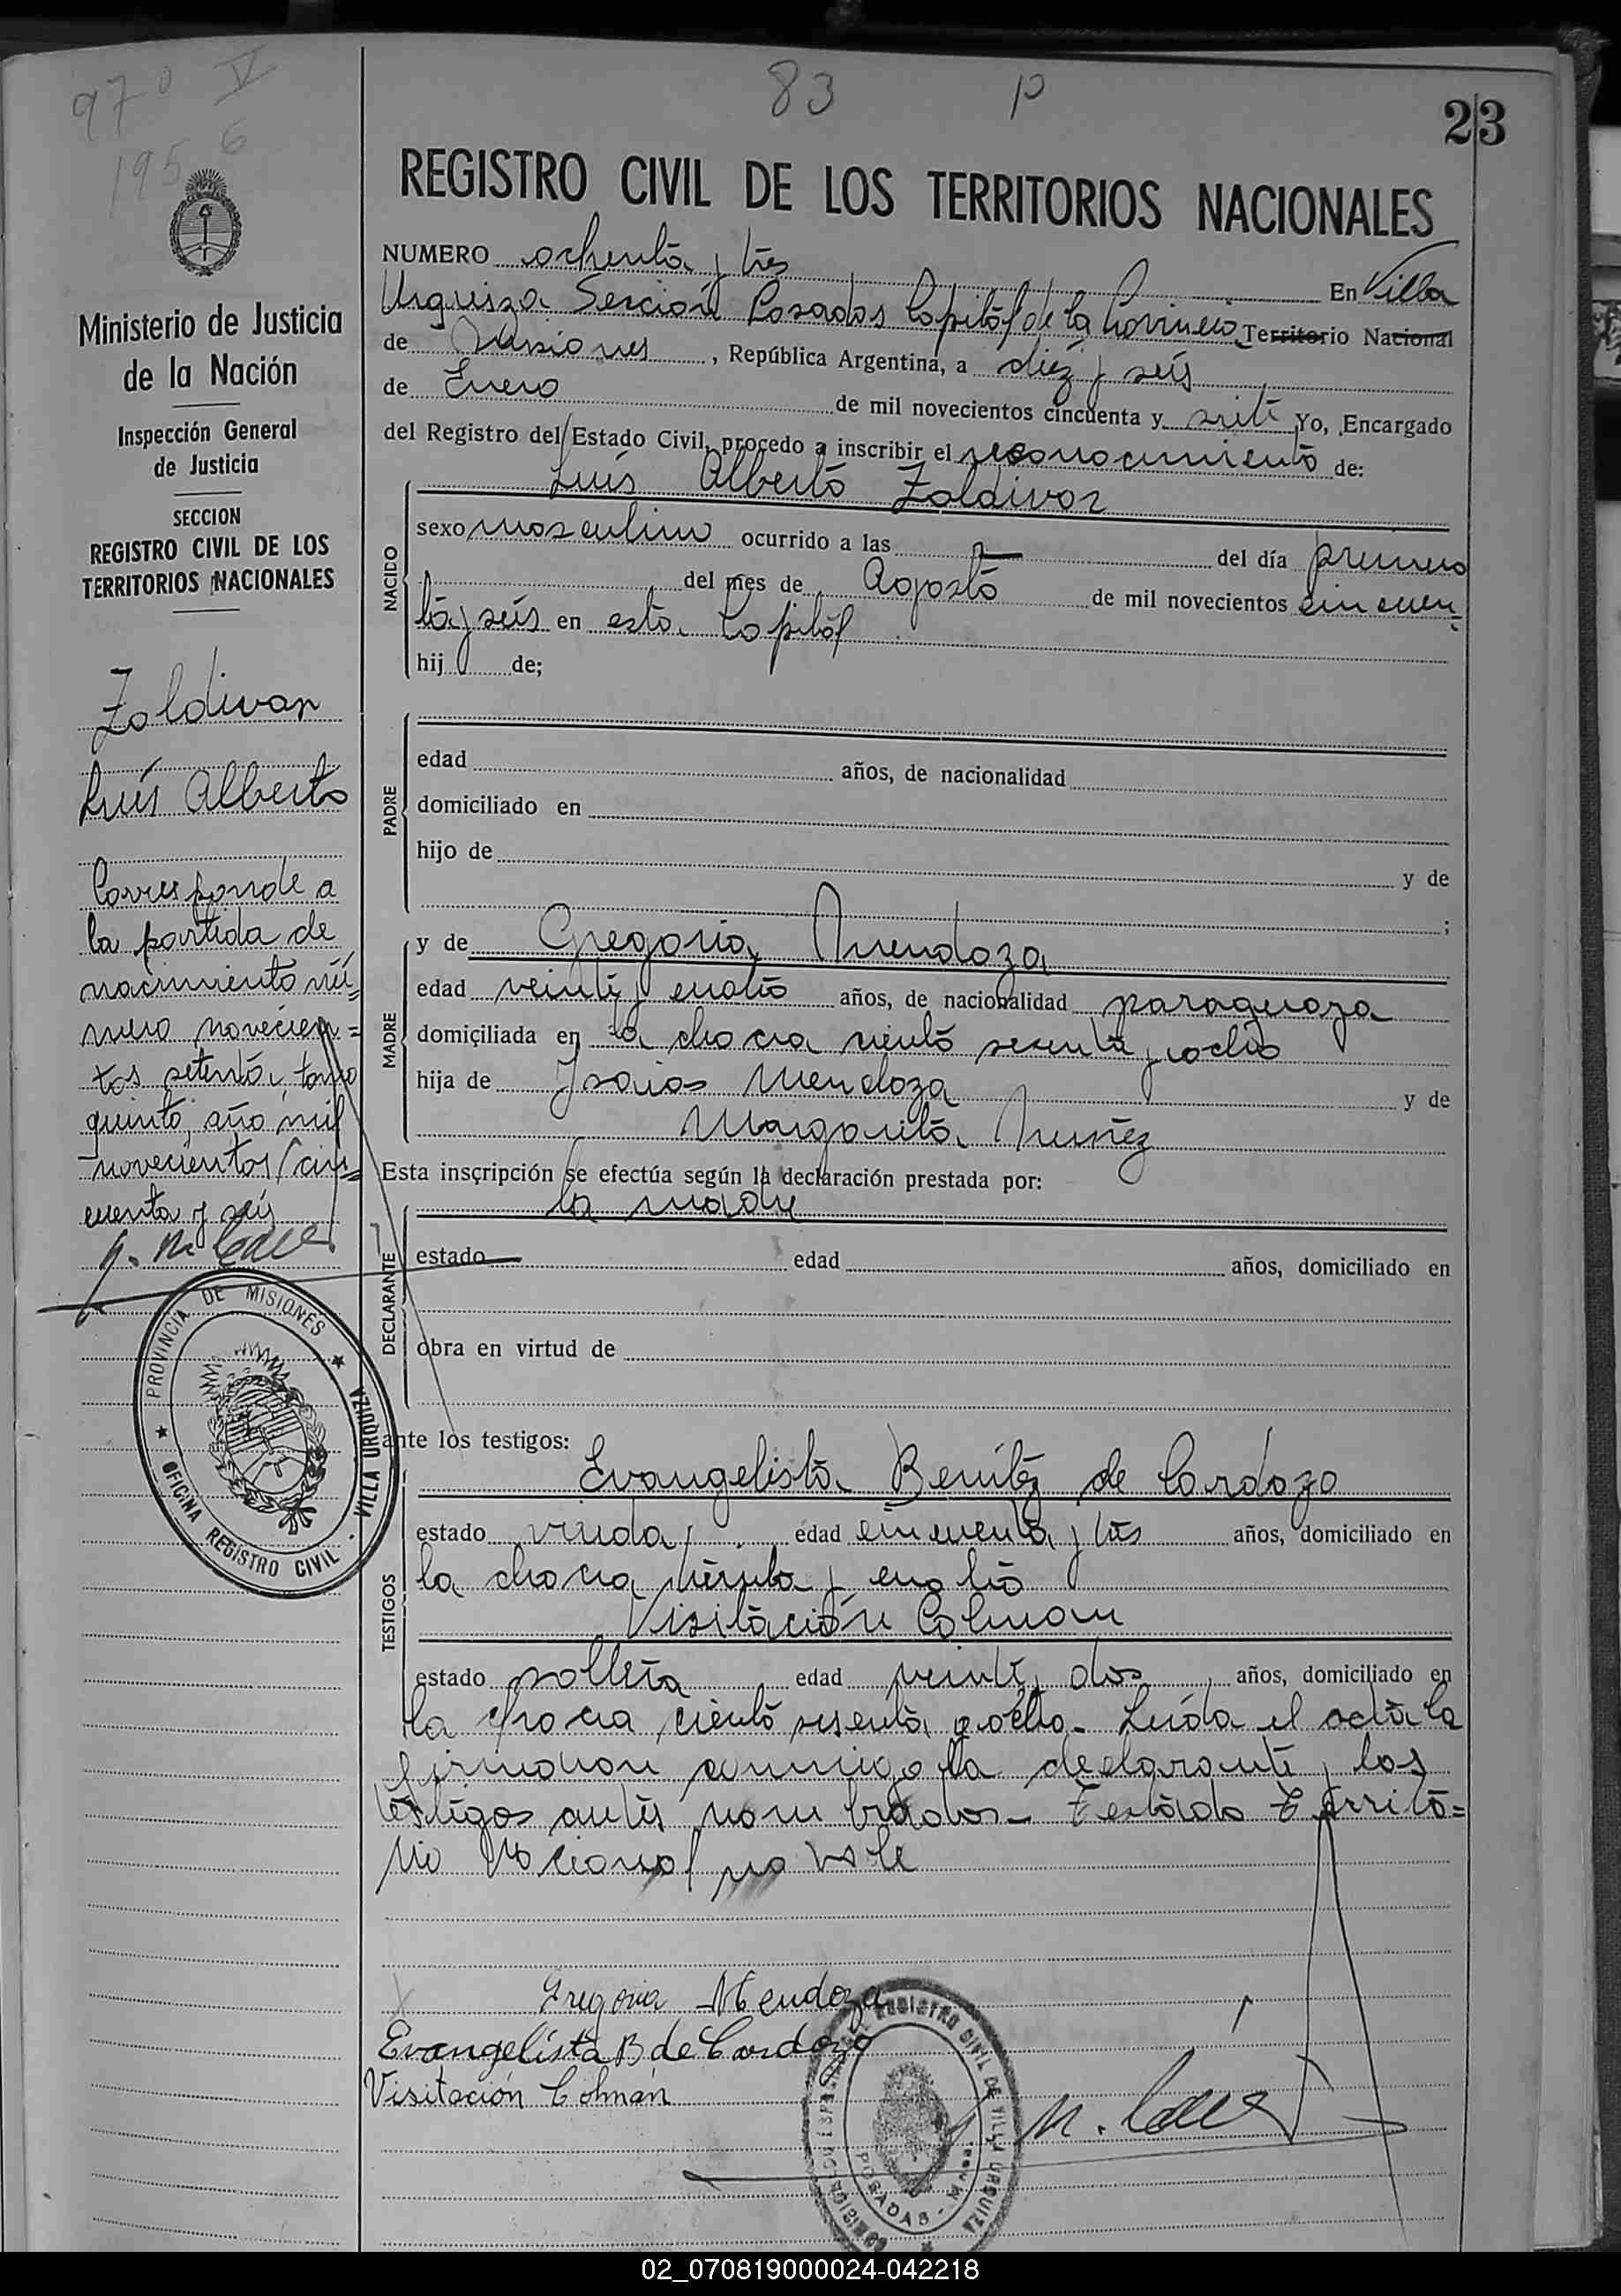 970 V
1956
83 P
23
Ministerio de Justicia
de la Nación
Inspección General
de Justicia
SECCION
REGISTRO CIVIL DE LOS
TERRITORIOS NACIONALES
Zaldivar
Luís Alberto
Corresponde a
la partida de
nacimiento nú=
mero novecien=
tos setenta, tomo
quinto, año mil
novecientos cin=
cuenta y seis
PROVINCIA DE MISIONES
OFICINA REGISTRO CIVIL · VILLA URQUIZA
REGISTRO CIVIL DE LOS TERRITORIOS NACIONALES
NUMERO ochenta y tres En Villa
Urquiza Sección Posadas Capital de la Provincia Territorio Nacional
de Misiones, República Argentina, a diez y seis
de Enero de mil novecientos cincuenta y siete Yo, Encargado
del Registro del Estado Civil, procedo a inscribir el reconocimiento de:
Luís Alberto Zaldivar
NACIDO
sexo masculino ocurrido a las — del día primero
del mes de Agosto de mil novecientos cincuen
ta y seis en esta Capital
hijo de;
PADRE
edad años, de nacionalidad
domiciliado en
hijo de y de
;
MADRE
y de Gregoria Mendoza
edad veinte y cuatro años, de nacionalidad paraguaya
domiciliada en la chacra ciento sesenta y ocho
hija de Isaias Mendoza y de
Margarita Nuñez
Esta inscripción se efectúa según la declaración prestada por:
la madre
DECLARANTE
estado edad años, domiciliado en
obra en virtud de
ante los testigos:
TESTIGOS
Evangelista Benítez de Cardozo
estado viuda, edad cincuenta y tres años, domiciliado en
la chacra treinta y cuatro
Visitación Colman
estado soltera edad veinte y dos años, domiciliado en
la chacra ciento sesenta y ocho - Leída el acta la
firmaron conmigo la declarante y los
testigos antes nombrados - Testado Territo=
rio Nacional no vale
Gregoria Mendoza
Evangelista B de Cardozo
Visitación Colmán
REGISTRO CIVIL DE VILLA URQUIZA
POSADAS - Mnes.
02_070819000024-042218